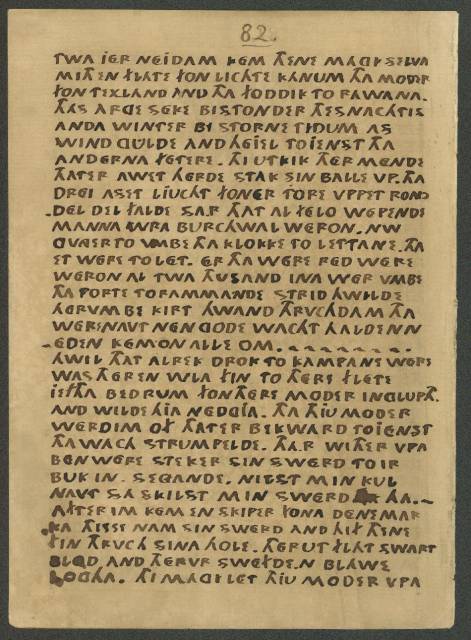 82.
TWA JER NEIDAM KEM THENE MAGI SELVA
MITH EN FLATE FON LICHTE KANUM THA MODER
FON TEXLAND AND THA FODDIK TO RAWANA.
THAS ARGE SEKE BISTONDER THES NACHTIS
ANDA WINTER BI STORNE TIDUM AS
WIND GULDE AND HEJEL TOJENST THA
ANDERNA FETERE. THI UTKIK THER MENDE
THATER AWET HERDE STAK SIN BALLE UP. THA
DREI ASET LJUCHT FONER TORE UPPET ROND
DEL DEL FALDE SA.R THAT AL FELO WEPENDE
MANNA WRA BURCHWAL WERON. NW
GVNGER TO VMBE THA KLOKKE TO LETTANE. THA
ET WERE TO LET. ER THA WERE RED WERE
WERON AL TWA THUSAND INA WER VMBE
THA PORTE TO RAMMANDE STRID HWILDE
HERUMBE KIRT HWAND THRVCHDAM THA
WERE NAVT NEN GODE WACHT HALDE NN
EDEN KEMON ALLE OM.
HWIL THAT ALREK DROK TO KAMPANE WERE
WAS THER EN WLA FIN TO THERE FLETE
JEFTHA BEDRUM FON THERE MODER INGLUPTH.
AND WILDE HJA NEDGJA. THA THJU MODER
WERDIM OF THATER BEKWARD TOJENST
THA WACH STRUMPELDE. THA.R WITHER UPA
BEN WERE STEKER SIN SWERD TO IR
BUK IN. SEGANDE. NILST MIN KUL
NAVT SA SKILST MIN SWERD HA.
AFTER IM KEM EN SKIPER FONA DENEMAR
KA THISSE NAM SIN SWERD AND HIF THENE
FIN THRVCH SINA HOLE. THERUT FLAT SWART
BLOD AND THERVR SWEFDE.N BLAWE
LOGHA. THI MAGI LET THJU MODER UPA